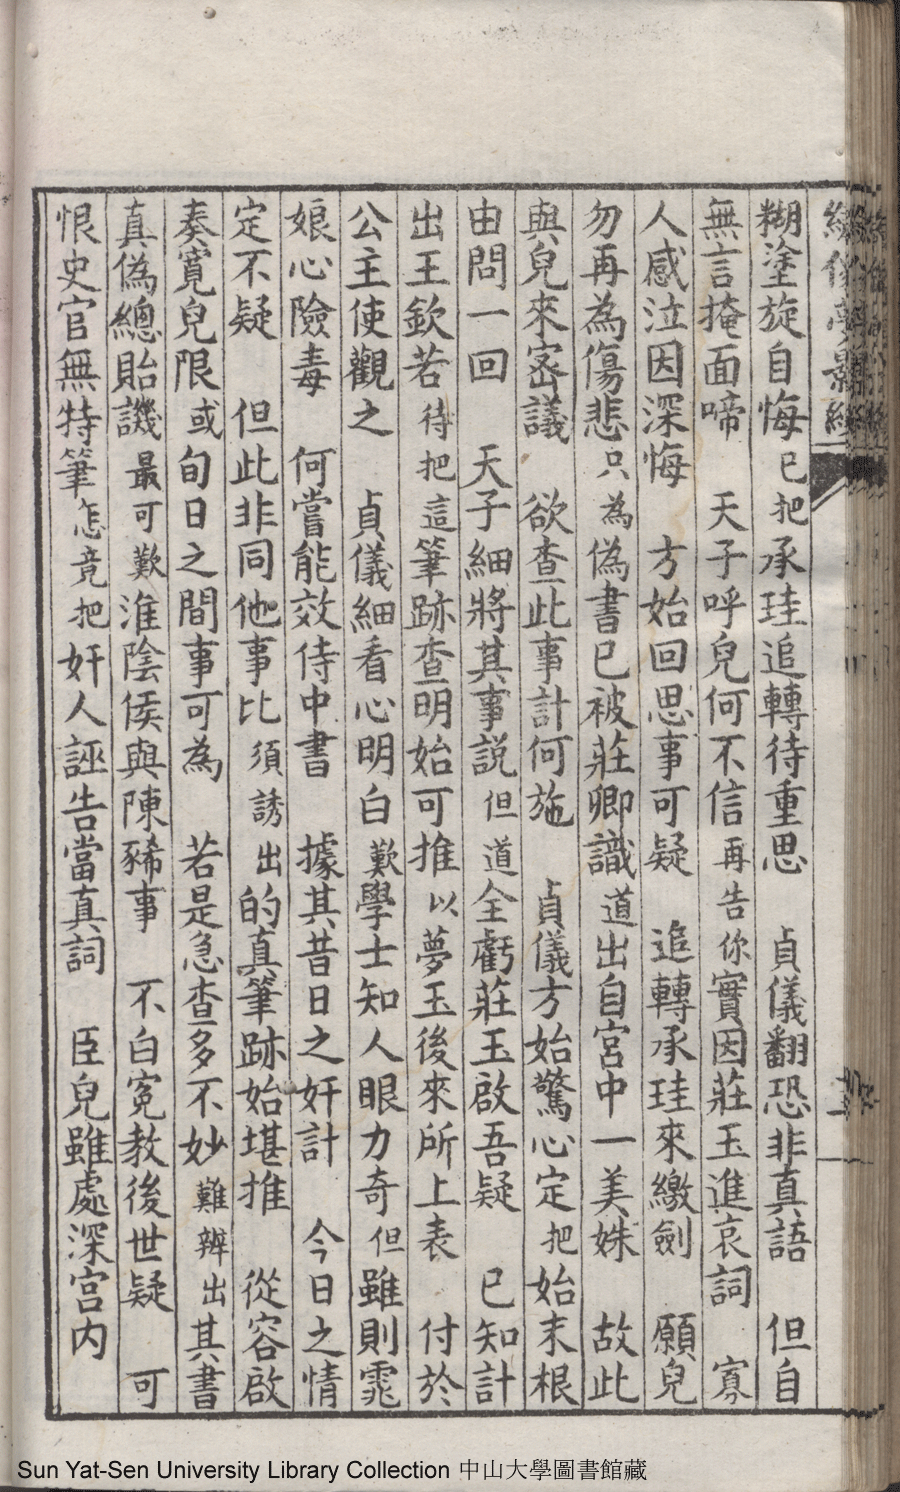 糊塗旋自悔已把承珪追轉待重思　貞儀翻恐非真語　但自
無言掩面啼　天子呼兒何不信再告你實因莊玉進哀詞　寡
人感泣因深悔　方始回思事可疑　追轉承珪來繳劍　願兒
勿再為傷悲只為偽書已被莊卿識道出自宮中一美姝　故此
與兒來密議　欲查此事計何施　貞儀方始驚心定把始末根
由問一回　天子細將其事説但道全虧莊玉啟吾疑　已知計
出王欽若待把這筆跡查明始可推以夢玉後來所上表　付於
公主使觀之　貞儀細看心明白歎學士知人眼力奇但雖則霏
娘心險毒　何嘗能效侍中書　據其昔日之奸計　今日之情
定不疑　但此非同他事比須誘出的真筆跡始堪推　從容啟
奏寬兒限或旬日之間事可為　若是急查多不妙難辨出其書
真偽總貽譏最可歎淮陰侯與陳豨事　不白冤教後世疑　可
恨史官無特筆怎竟把奸人誣告當真詞　臣兒雖處深宮內
Sun Yat-Sen University Library Collection 中山大學圖書館藏